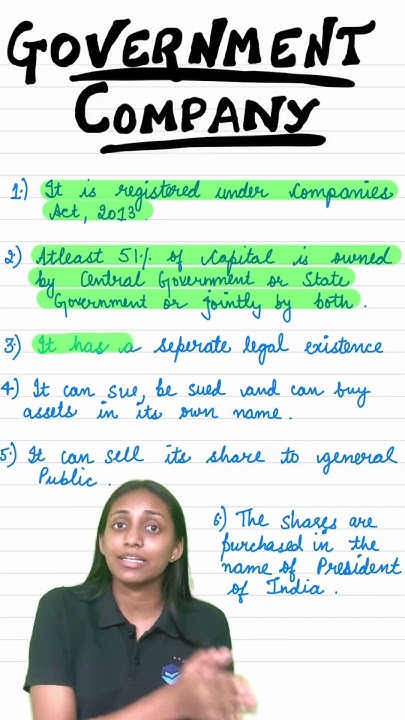 GOVERNMENT
COMPANY
1.) It is registered under companies
Act, 2013.
2.) Atleast 51% of capital is owned
by Central Government or State
Government or jointly by both.
3.) It has a seperate legal existence
4.) It can sue, be sued and can buy
assets in its own name.
5.) It can sell its share to general
Public.
6.) The shares are
purchased in the
name of President
of India.